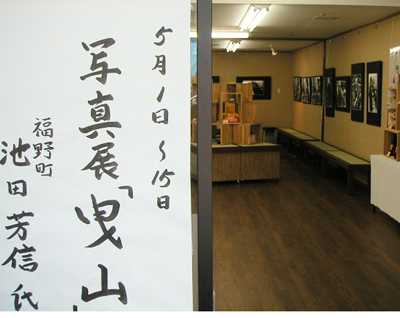 5月1日～15日
写真展「曳山」
福野町
池田芳信氏